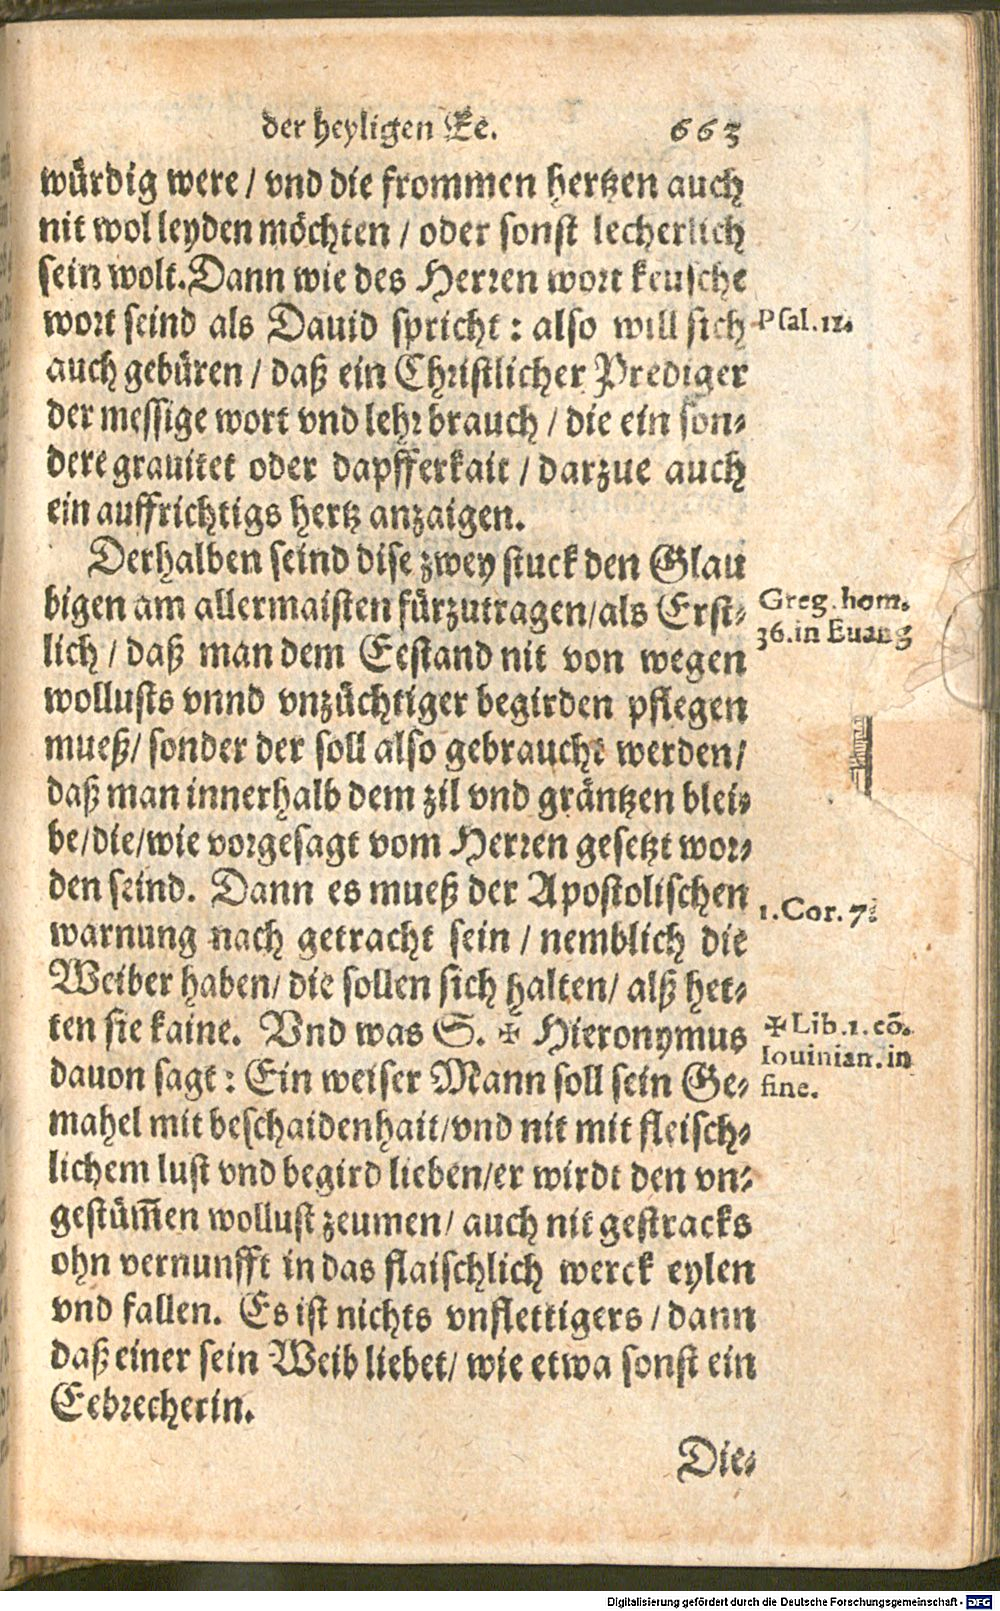 der heyligen Ee. 663
würdig were / vnd die frommen hertzen auch
nit wol leyden möchten / oder sonst lecherlich
sein wolt. Dann wie des Herren wort keusche
wort seind als Dauid spricht : also will sich
Psal. 12.
auch gebüren / daß ein Christlicher Prediger
der messige wort vnd lehr brauch / die ein son-
dere grauitet oder dapfferkait / darzue auch
ein auffrichtigs hertz anzaigen.
Derhalben seind dise zwey stuck den Glau
bigen am allermaisten fürzutragen/als Erst-
Greg. hom.
36. in Euang
lich / daß man dem Eestand nit von wegen
wollusts vnnd vnzüchtiger begirden pflegen
mueß/ sonder der soll also gebraucht werden/
daß man innerhalb dem zil vnd gräntzen blei-
be/die/wie vorgesagt vom Herren gesetzt wor-
den seind. Dann es mueß der Apostolischen
1. Cor. 7.
warnung nach getracht sein / nemblich die
Weiber haben/ die sollen sich halten/ alß het-
ten sie kaine. Vnd was S. ✠ Hieronymus
✠ Lib. 1. cō.
Iouinian. in
fine.
dauon sagt : Ein weiser Mann soll sein Ge-
mahel mit beschaidenhait/vnd nit mit fleisch-
lichem lust vnd begird lieben/er wirdt den vn-
gestüm̄en wollust zeumen/ auch nit gestracks
ohn vernunfft in das flaischlich werck eylen
vnd fallen. Es ist nichts vnflettigers / dann
daß einer sein Weib liebet/ wie etwa sonst ein
Eebrecherin.
Die-
Digitalisierung gefördert durch die Deutsche Forschungsgemeinschaft - DFG